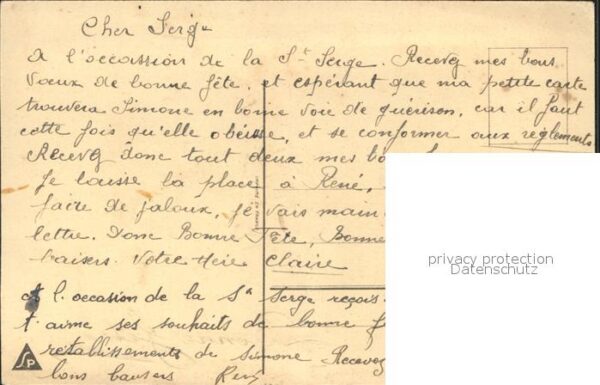 Cher Serge
A l'occassion de la St Serge. Recevez mes bons
vœux de bonne fête. et espérant que ma petite carte
trouvera Simone en bonne voie de guérison, car il faut
cette fois qu'elle obéisse, et se conformer aux reglements
Recevez donc tout deux mes
Je laisse la place à René,
faire de jaloux, je vais main
lettre. Donc Bonne Fête, Bonne
Baisers. Votre Claire
et l'occasion de la St Serge reçois
t'aime ses souhaits de bonne
rétablissements de Simone Recevez
bons baisers
SP
privacy protection
Datenschutz